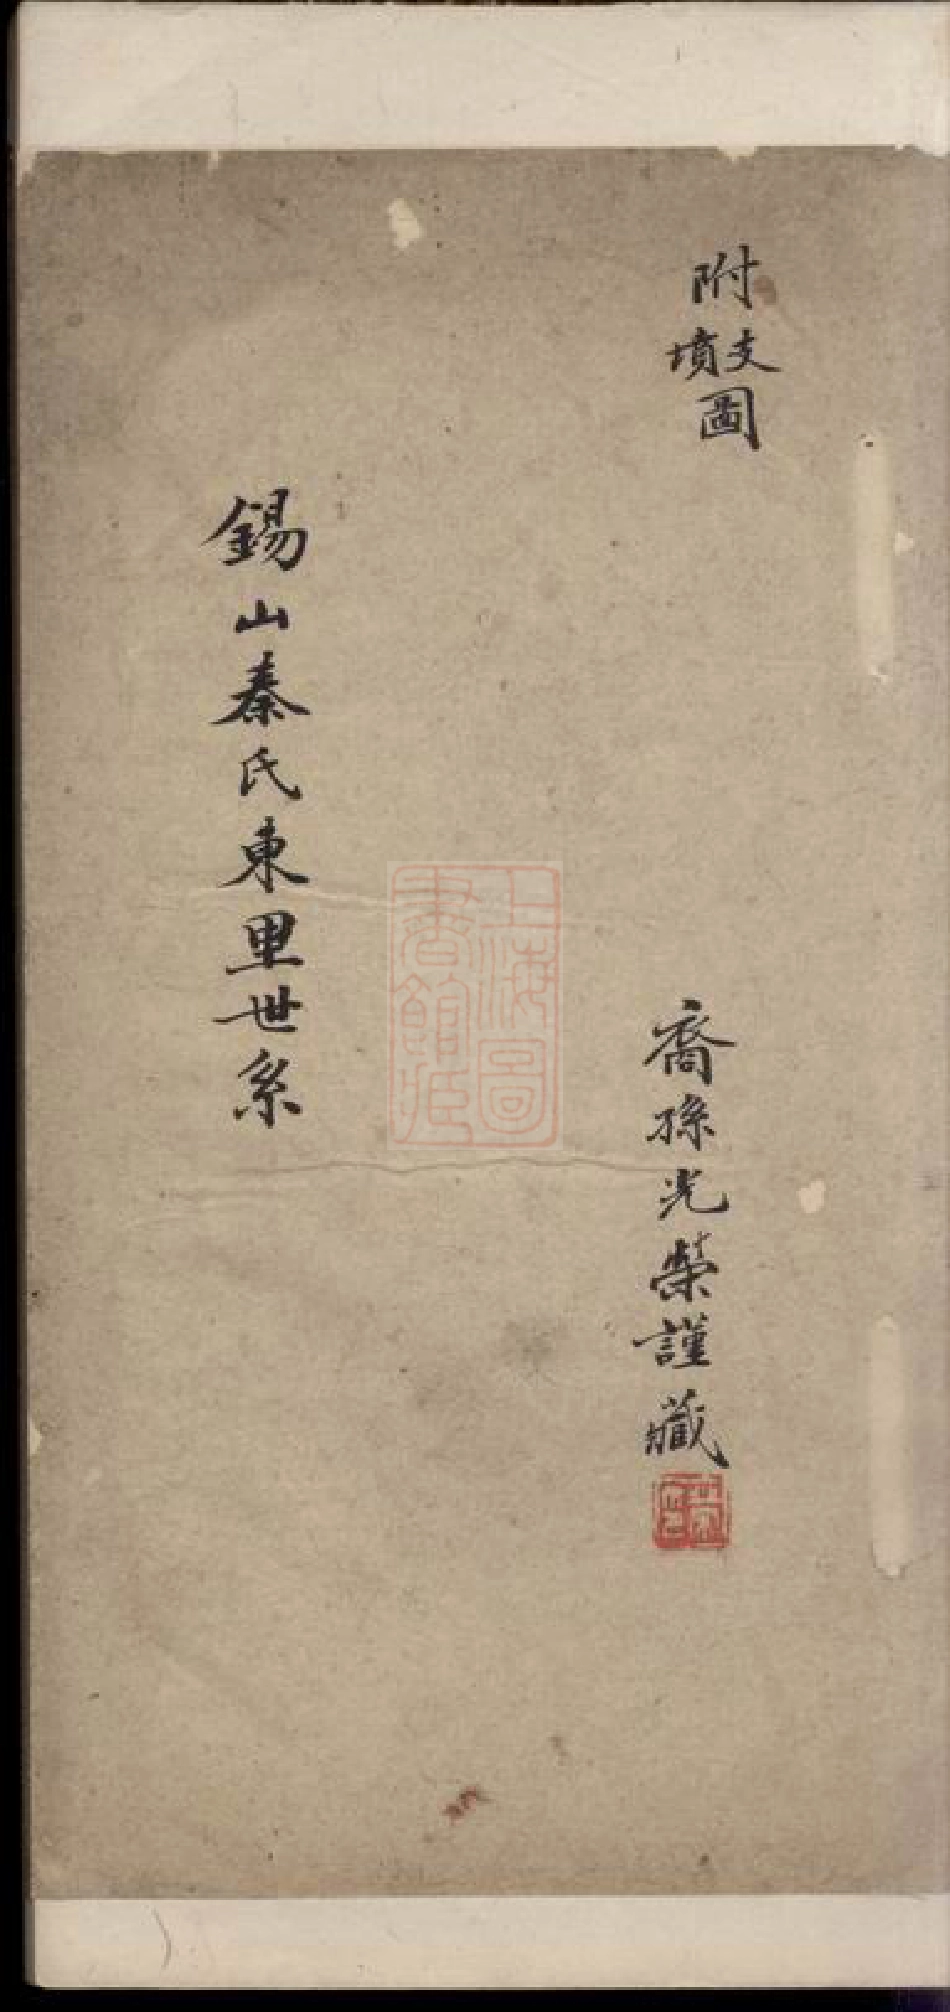 附支墳圖
裔孫光榮謹藏
上海圖書館藏
錫山秦氏東里世系